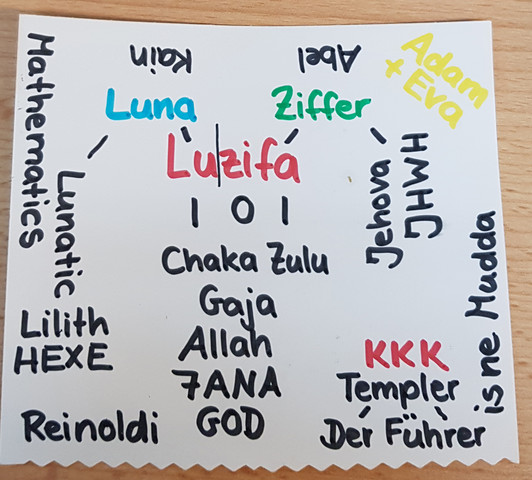 Mathematics
Kain
Abel
Adam
+ Eva
Luna
Ziffer
Luzifa
Lunatic
Jehova
JHWH
1 0 1
Chaka Zulu
Gaja
Allah
7ANA
GOD
Lilith
HEXE
Reinoldi
KKK
Templer
Der Führer
is ne Mudda